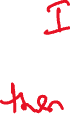 I
then